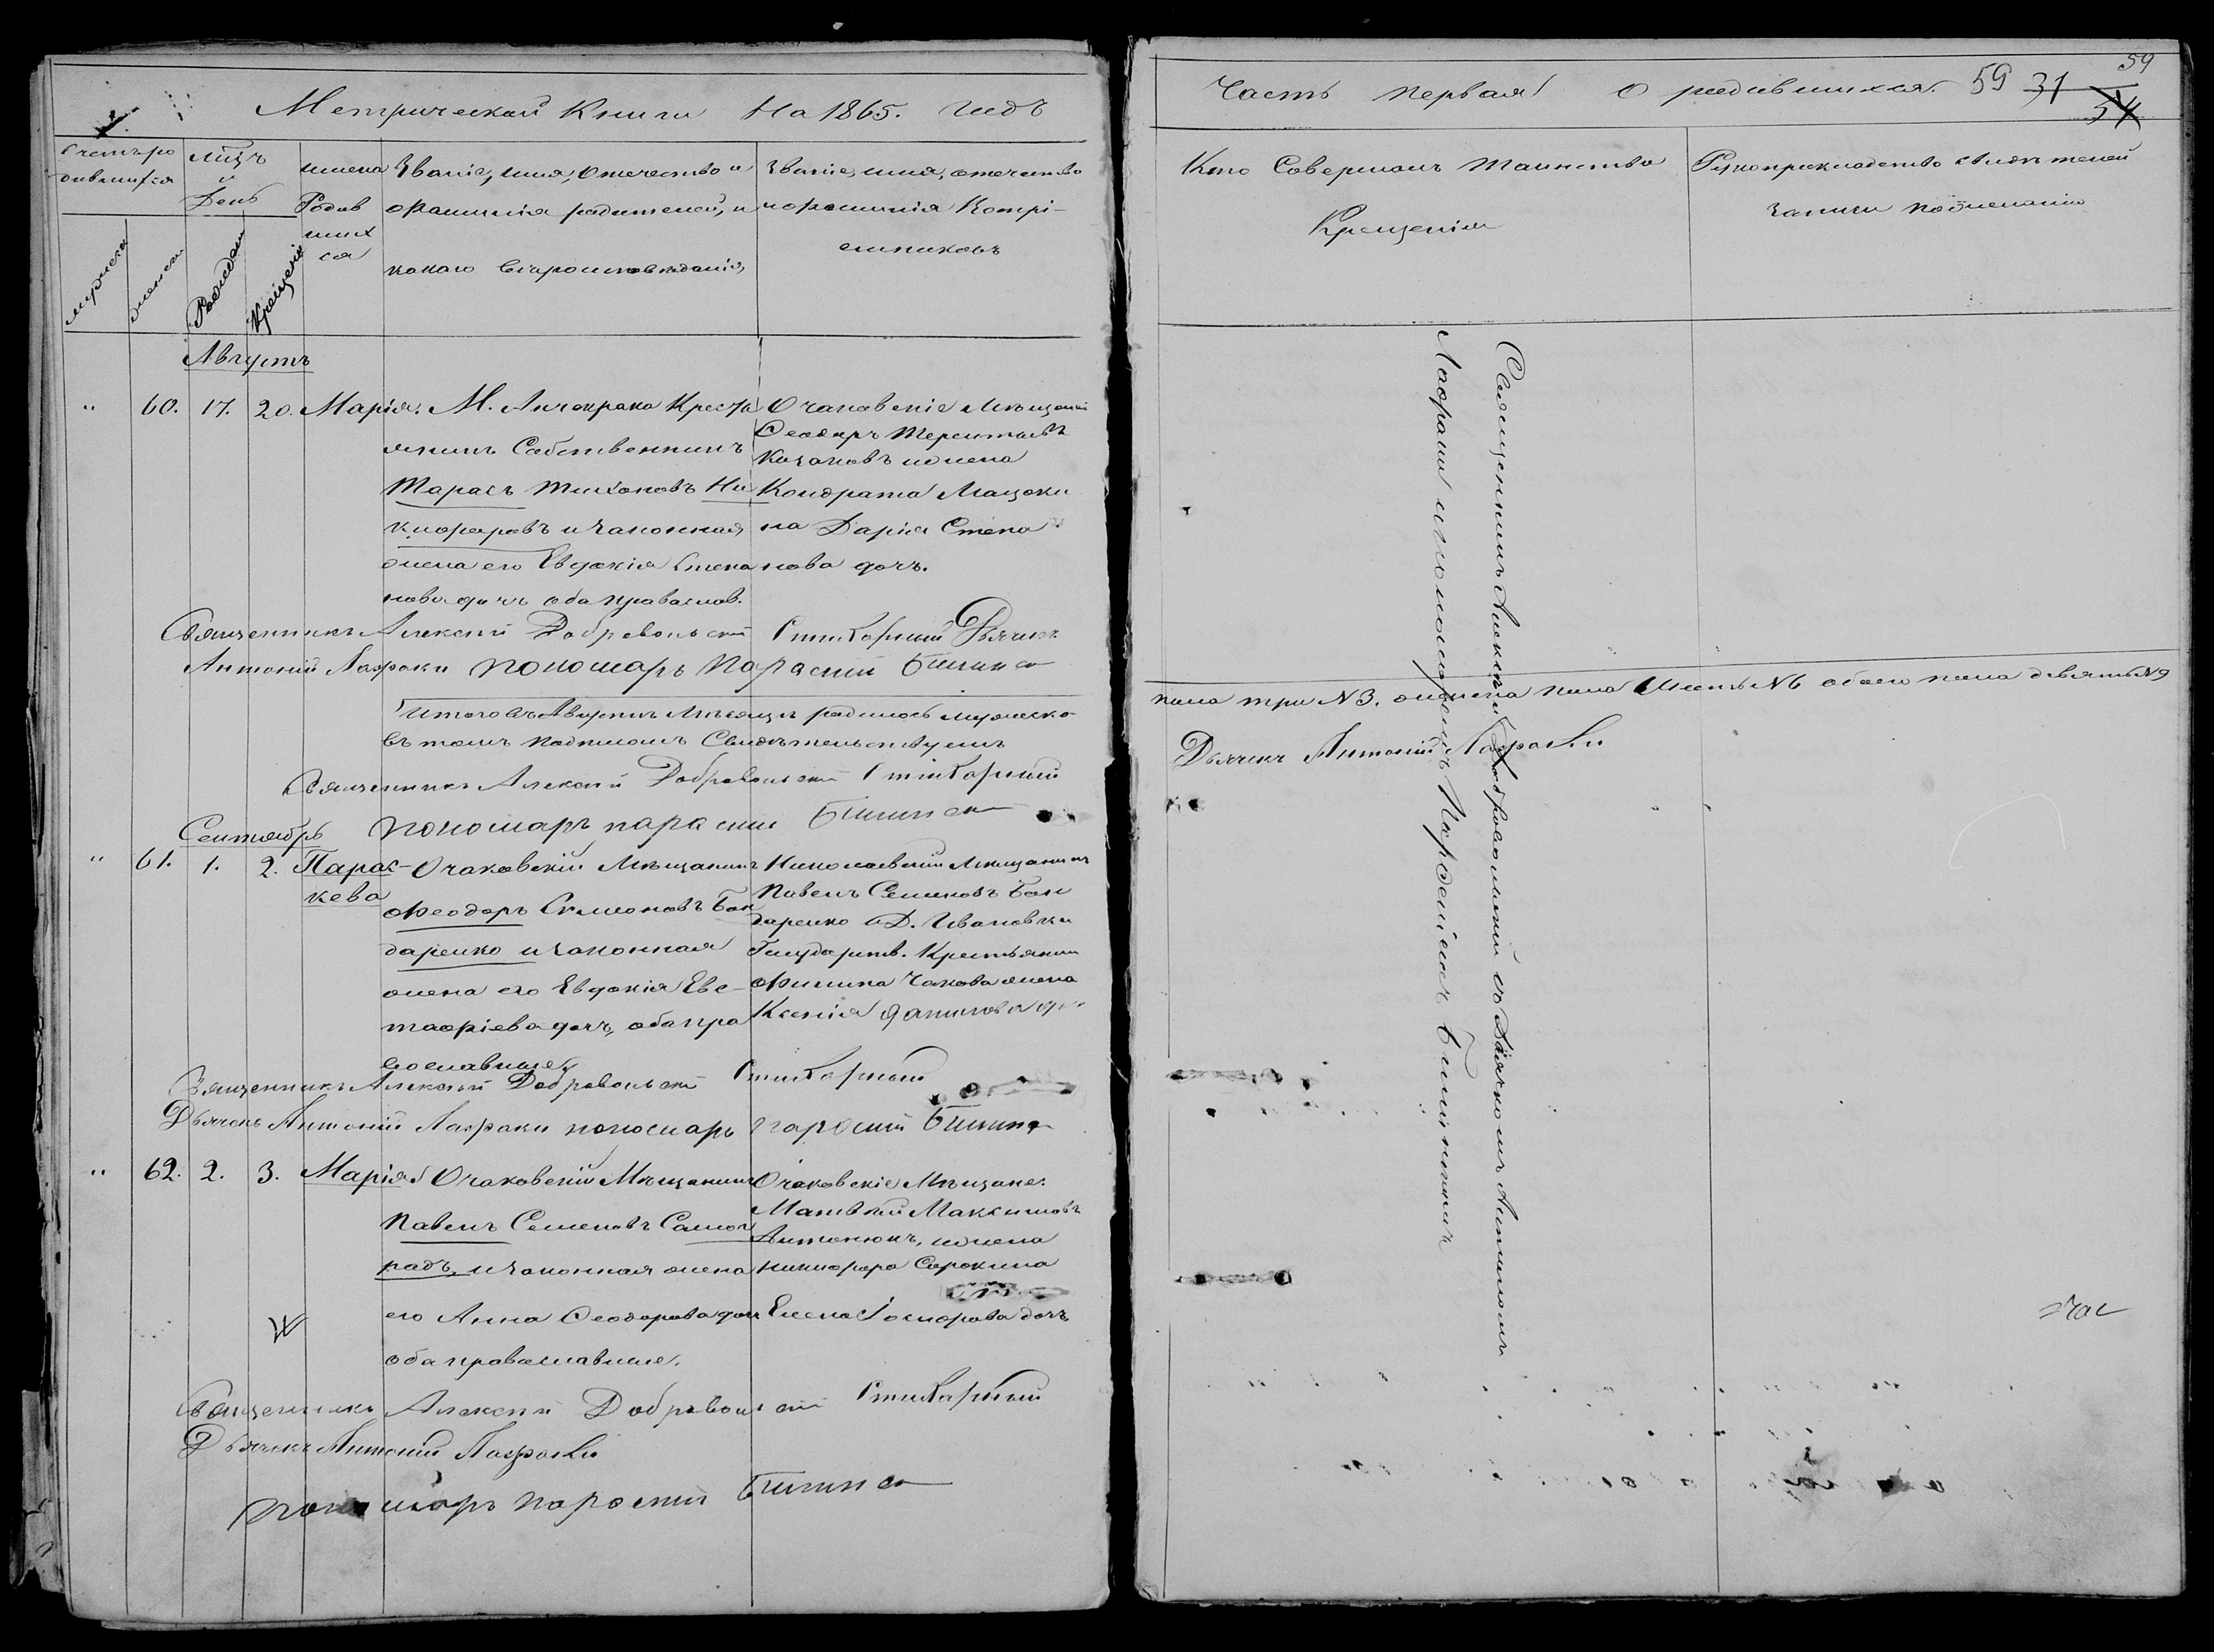 Метрической Книги На 1865. годъ
Счетъ родившихся
Мѣсяцъ и День
Имена Родившихся
Званіе, имя, отечество и фамилія родителей, и какого вѣроисповѣданія
Званіе, имя, отечество и фамилія Воспріемниковъ
мужеска
женска
Рожденія
Крещенія
Августъ
" 60. 17. 20. Марія.
М. Анчокрака Кресть
янинъ Собственникъ
Тарасъ Тихоновъ Ни
кифоровъ и законная
жена его Евдокія Степа
нова дочь оба православ.
Очаковскіе Мѣщане
Феодоръ Терентьевъ
Казаковъ и жена
Кондрата Мацоки
на Дарія Степа
нова дочь.
Священникъ Алексій Добровольскій Стихарный Дьячекъ
Антоній Лафаки пономарь Парасій
Итого въ Августѣ Мѣсяцѣ родилось мужеско-
въ томъ подписомъ Свидѣтельствуемъ
Священникъ Алексій Добровольскій Стихарный
пономарь парасій
Сентябрь
" 61. 1. 2. Парас-
кева
Очаковскій Мѣщанинъ
Феодоръ Симеоновъ Бон
даренко и законная
жена его Евдокія Евс-
тафіева дочь, оба пра
вославные
Николаевскій Мѣщанинъ
Павелъ Семеновъ Бон
даренко Д. Ивановки
Государств. Крестьянина
Филипа Чакова жена
Ксенія Данилова
Священникъ Алексій Добровольскій Стихарный
Дьячекъ Антоній Лафаки пономарь парасій
" 62. 2. 3. Марія
Очаковскій Мѣщанинъ
Павелъ Семеновъ Самог
радъ, и законная жена
его Анна Феодорова дочь
оба православные.
Очаковскіе Мѣщане:
Матвѣй Максимовъ
Антонюкъ, и жена
Никифора Сорокина
Елена дочь
Священникъ Алексій Добровольскій Стихарный
Дьячекъ Антоній Лафаки
пономарь парасій
Часть первая о родившихся. 59 31 59
54
Кто Совершалъ Таинство
Крещенія
Рукоприкладство свидѣтелей
записи по желанію
Священникъ Алексій Добровольскій съ Дьячкомъ Антоніемъ
Лафаки и пономаремъ Парасіемъ
пола три №3. женска пола Шесть №6 обоего пола девять №9
Дьячекъ Антоній Лафаки